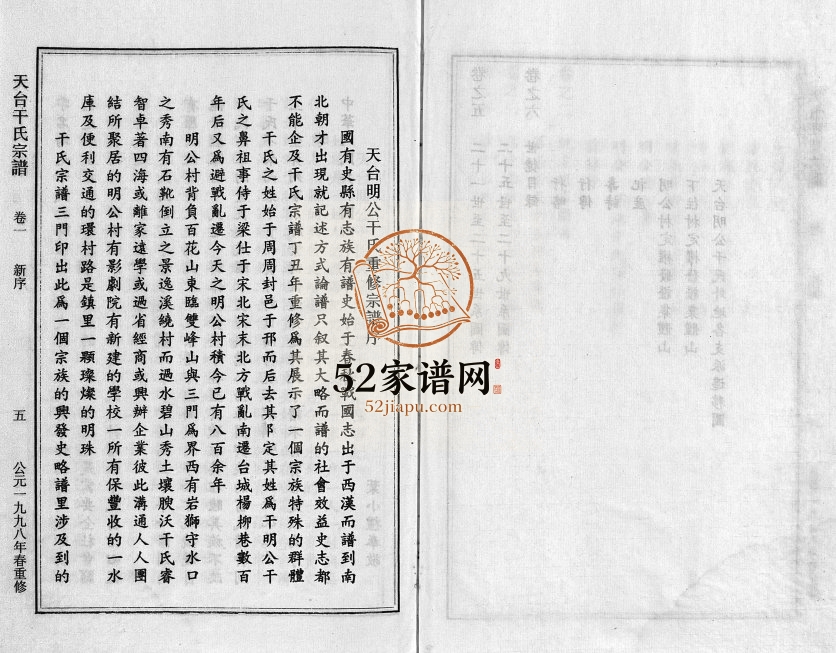 天台明公干氏重修宗譜序
國有史縣有志族有譜史始于春秋戰國志出于西漢而譜到南
北朝才出現就記述方式論譜只叙其大略而譜的社會效益史志都
不能企及干氏宗譜丁丑年重修爲其展示了一個宗族特殊的群體
干氏之姓始于周周封邑于邗而后去其阝定其姓爲干明公干
氏之鼻祖事侍于梁仕于宋北宋末北方戰亂南遷台城楊柳巷數百
年后又爲避戰亂遷今天之明公村積今已有八百余年
明公村背負百花山東臨雙峰山與三門爲界西有岩獅守水口
之秀南有石靴倒立之景逸溪繞村而過水碧山秀土壤腴沃干氏睿
智卓著四海或離家遠學或過省經商或興辦企業彼此溝通人人團
結所聚居的明公村有影劇院有新建的學校一所有保豐收的一水
庫及便利交通的環村路是鎮里一顆璨燦的明珠
干氏宗譜三門印出此爲一個宗族的興發史略譜里涉及到的
天台干氏宗譜
卷一
新序
五
公元一九九八年春重修
52家谱网
52jiapu.com